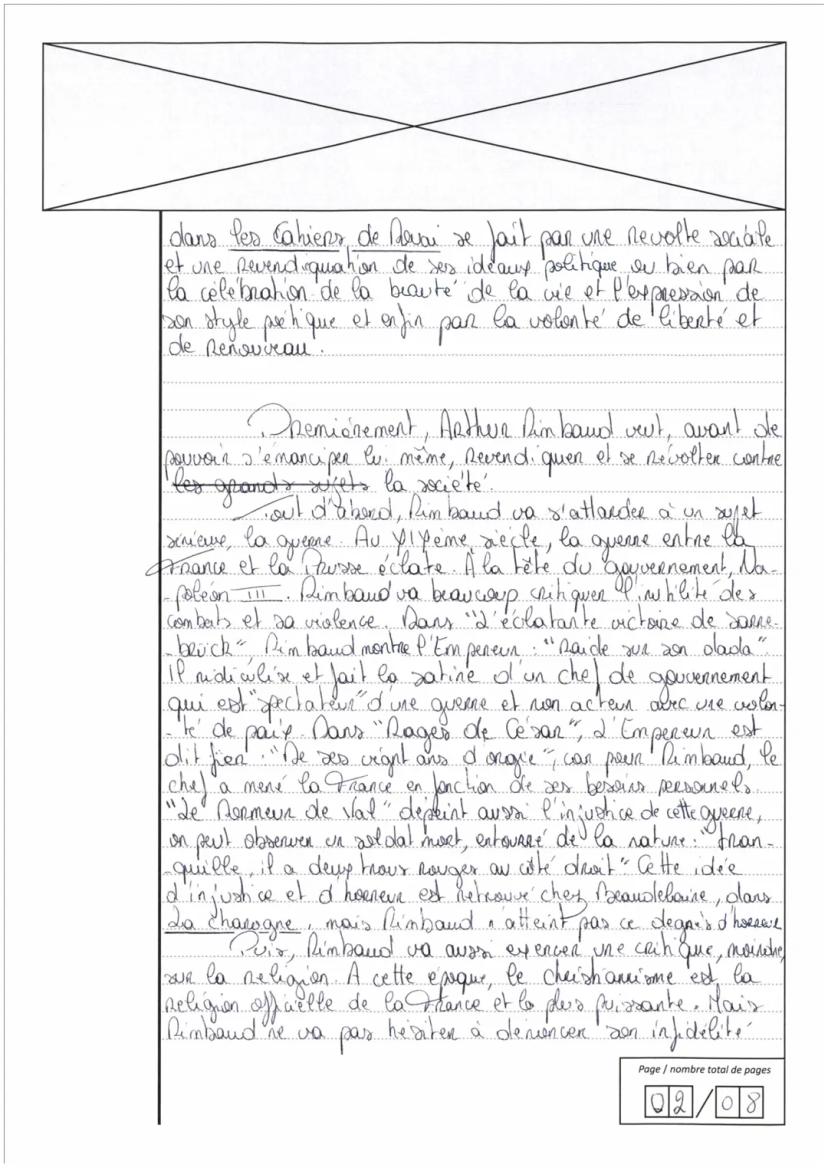 dans les Cahiers de Douai se fait par une revolte sociale
et une revendiquation de ses idéaux politique ou bien par
la célébration de la beauté de la vie et l'expression de
son style poétique et enfin par la volonté de liberté et
de renouveau.
Premièrement, Arthur Rimbaud veut, avant de
pouvoir s'émanciper lui même, revendiquer et se révolter contre
les grands sujets la société.
Tout d'abord, Rimbaud va s'attarder à un sujet
sérieux, la guerre. Au XIXème siècle, la guerre entre la
France et la Prusse éclate. À la tête du gouvernement, Na-
-poléon III. Rimbaud va beaucoup critiquer l'inutilité des
combats et sa violence. Dans "L'éclatante victoire de Sarre-
-brück", Rimbaud montre l'Empereur : "Raide sur son dada".
Il ridiculise et fait la satire d'un chef de gouvernement
qui est "spectateur" d'une guerre et non acteur avec une volon-
-té de paix. Dans "Rages de César", L'Empereur est
dit fier : "De ses vingt ans d'orgie", car pour Rimbaud, le
chef a mené la France en fonction de ses besoins personnels.
"Le Dormeur de Val" dépeint aussi l'injustice de cette guerre,
on peut observer un soldat mort, entourré de la nature : "tran-
-quille, il a deux trous rouges au côté droit" Cette idée
d'injustice et d'horreur est retrouvé chez Beaudelaire, dans
La charogne, mais Rimbaud n'atteint pas ce degrés d'horreur
Puis, Rimbaud va aussi exercer une critique, moindre,
sur la religion. A cette époque, le christianisme est la
religion officielle de la France et la plus puissante. Mais
Rimbaud ne va pas hésiter à dénoncer son infidélité
Page / nombre total de pages
02/08